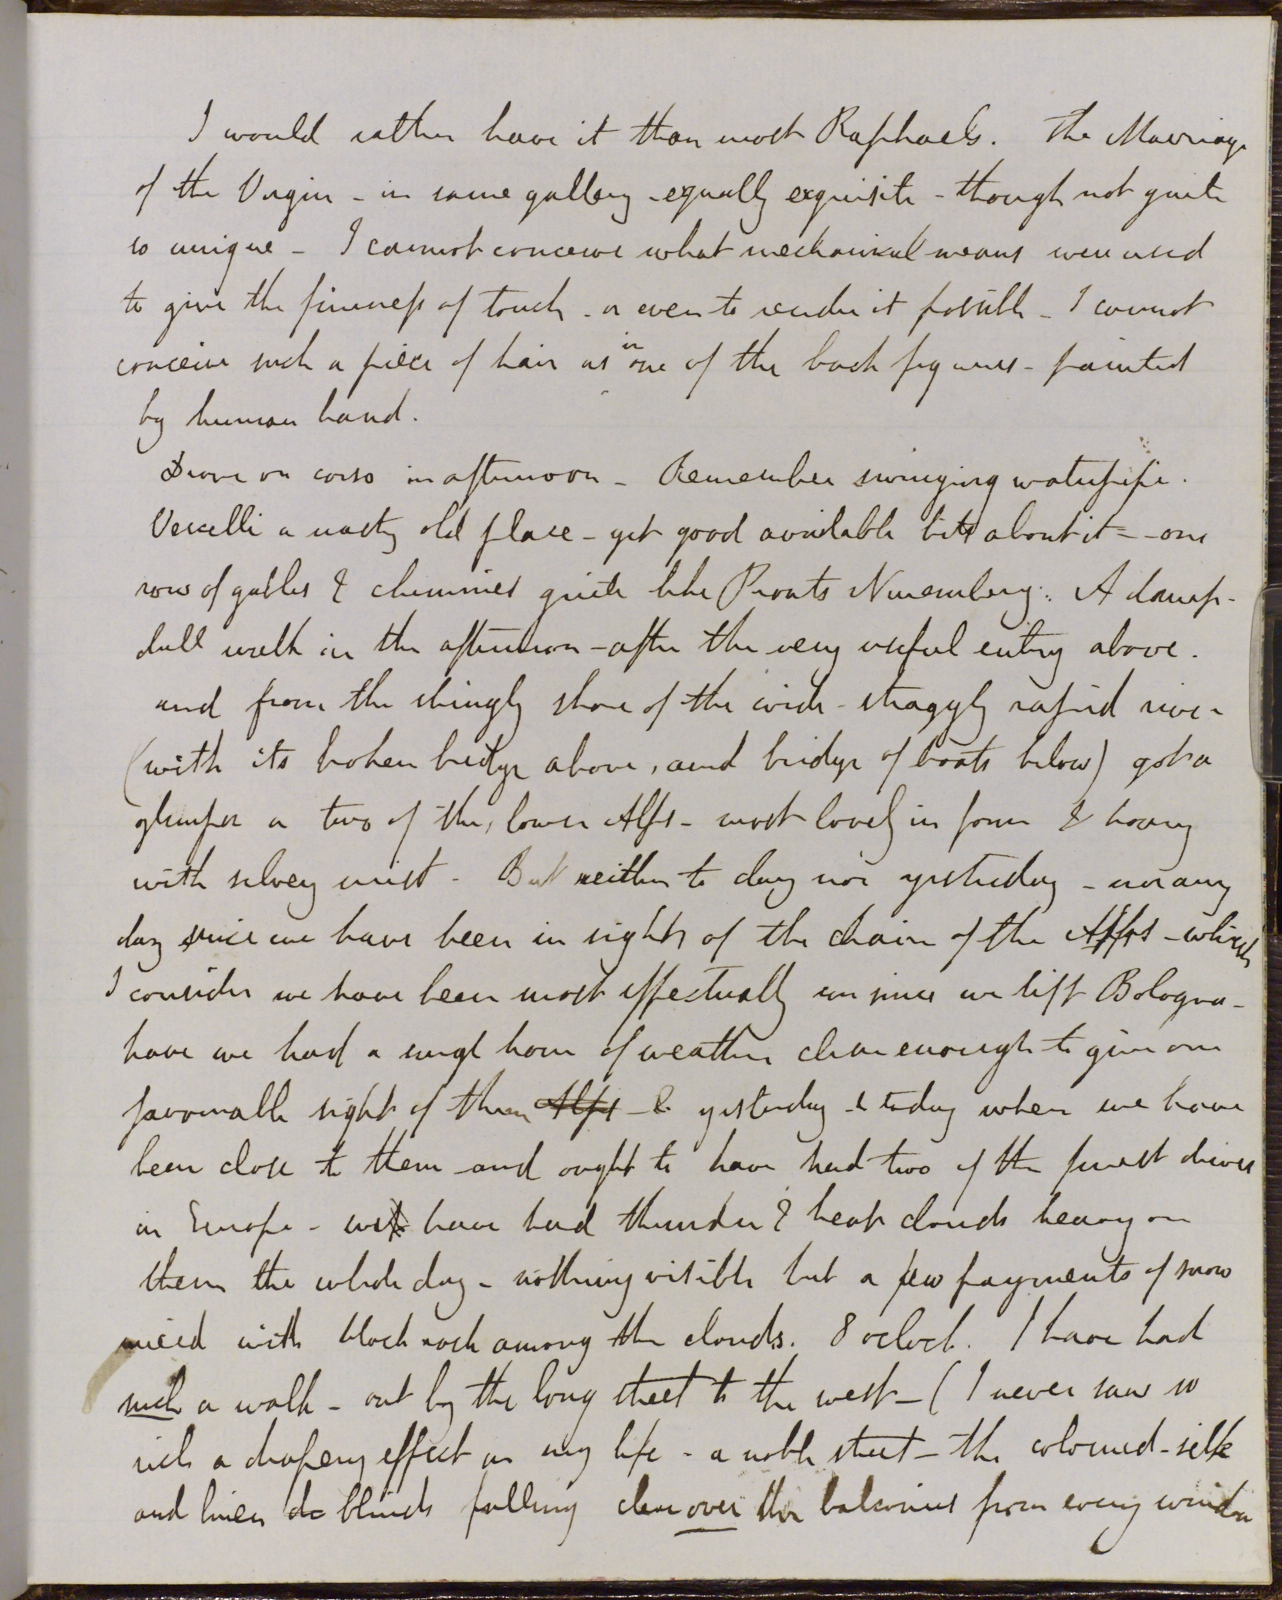 I would rather have it than most Raphaels. The Marriage
of the Virgin - in same gallery - equally exquisite - though not quite
so unique - I cannot conceive what mechanical means were used
to give the fineness of touch - or even to render it possible - I cannot
conceive such a piece of hair as in one of the back figures - painted
by human hand.
Drove on corso in afternoon - Remember swinging waterpipe.
Vercelli a nasty old place - yet good available bits about it - one
row of gables & chimnies quite like Prouts Nuremburg. A damp -
dull walk in the afternoon - after the very useful entry above.
and from the shingly shore of the wide - straggly rapid river
(with its broken bridge above, and bridge of boats below) got a
glimpse or two of the lower Alps - most lovely in form & hoary
with silvery mist - But neither to day nor yesterday - nor any
day since we have been in sight of the chain of the Alps - which
I consider we have been most effectually ever since we left Bologna -
have we had a single hour of weather clear enough to give one
favourable sight of them Alps - & yesterday & today when we have
been close to them and ought to have had two of the finest drives
in Europe - we have had thunder & heat clouds heavy on
them the whole day - nothing visible but a few fragments of snow
mixed with black rock among the clouds. 8 oclock. I have had
such a walk - out by the long street to the west - (I never saw so
rich a drapery effect in my life - a noble street - the coloured - silk
and linen blinds falling clear over the balconies from every window